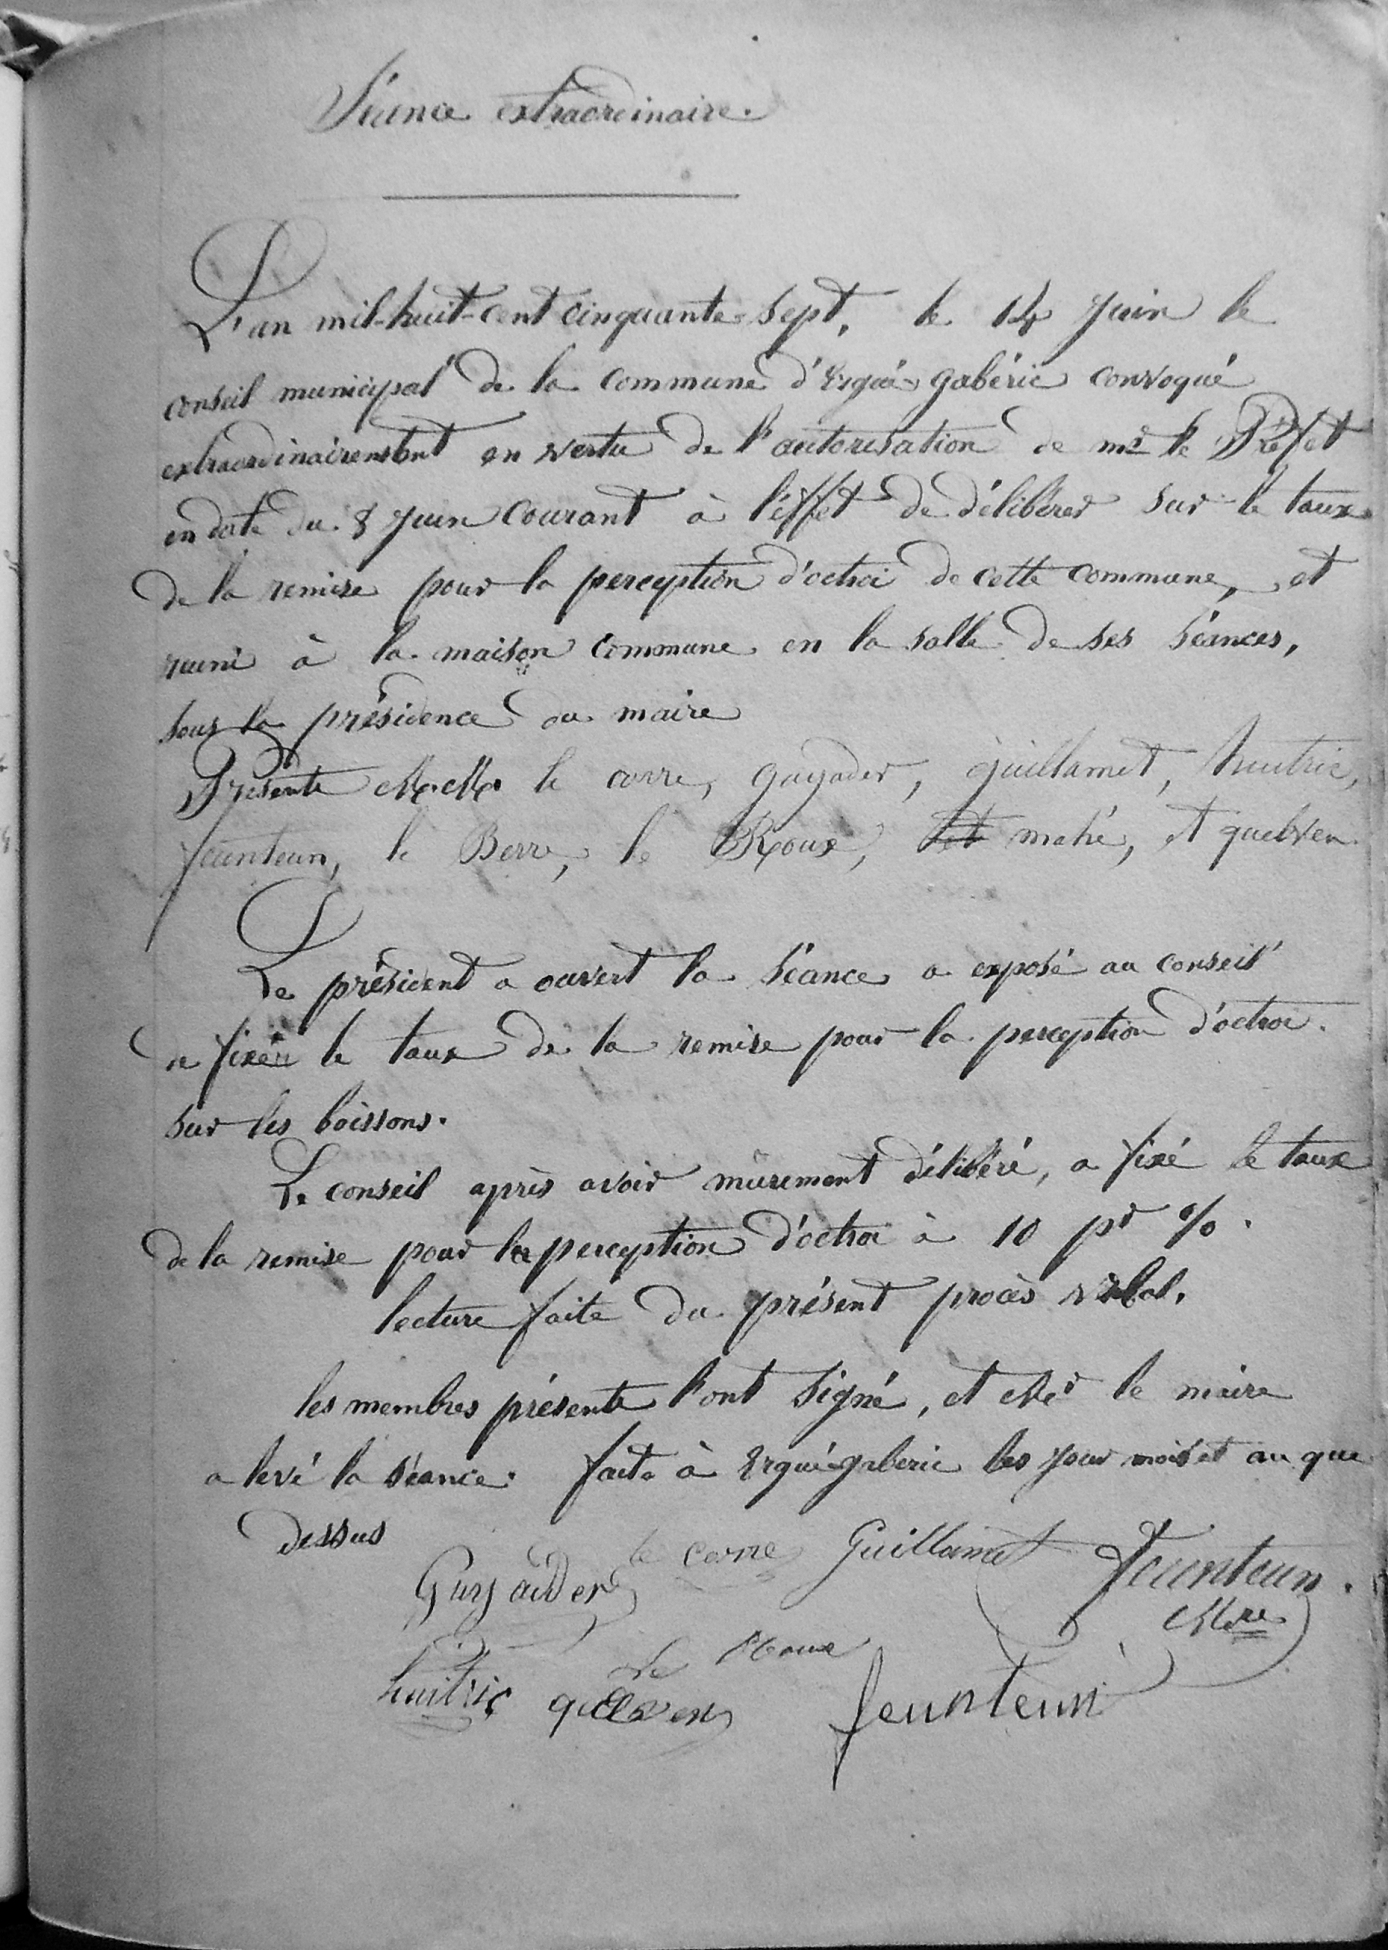 Séance extraordinaire.
L'an mil-huit-cent cinquante-sept, le 14 Juin le
conseil municipal de la commune d'Ergué-gabéric convoqué
extraordinairement en vertu de l'autorisation de mr le Préfet
en date du 8 Juin courant à l'éffet de délibérer sur le taux
de la remise pour la perception d'octroi de cette commune, et
réuni à la maison commune en la salle de ses séances,
sous la présidence du maire
Présents M.M. le corre, guyader, guillamet, huitric,
feunteun, le Berre, le Roux, mahé, et quelven
Le président a ouvert la séance a exposé au conseil
de fixer le taux de la remise pour la perception d'octroi
sur les boissons.
Le conseil après avoir mûrement délibéré, a fixé le taux
de la remise pour la perception d'octroi à 10 pr %.
lecture faite du présent procès verbal,
les membres présents l'ont signé, et Mr le maire
a levé la séance. fait à Erguégabéric les jour mois et an que
dessus
Guyader le corre Guillamet feunteun.
Mre
huitric quelven Le Roux feunteun